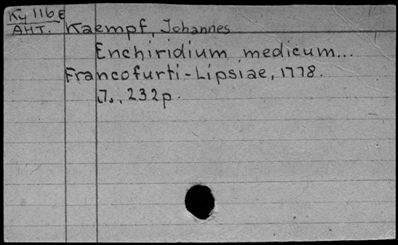 Ky 116 E
AHT. Kaempf, Johannes
Enchiridium medicum...
Francofurti-Lipsiae, 1778.
232p.